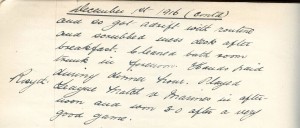 December 1st 1916 (contd)
and so got adrift with routine
and scrubbed mess deck after
breakfast. Cleaned bath room
trunk in forenoon. Hands paid
during dinner hour. Played
League match a Marines in after-
noon and won 3-0 after a very
good game.